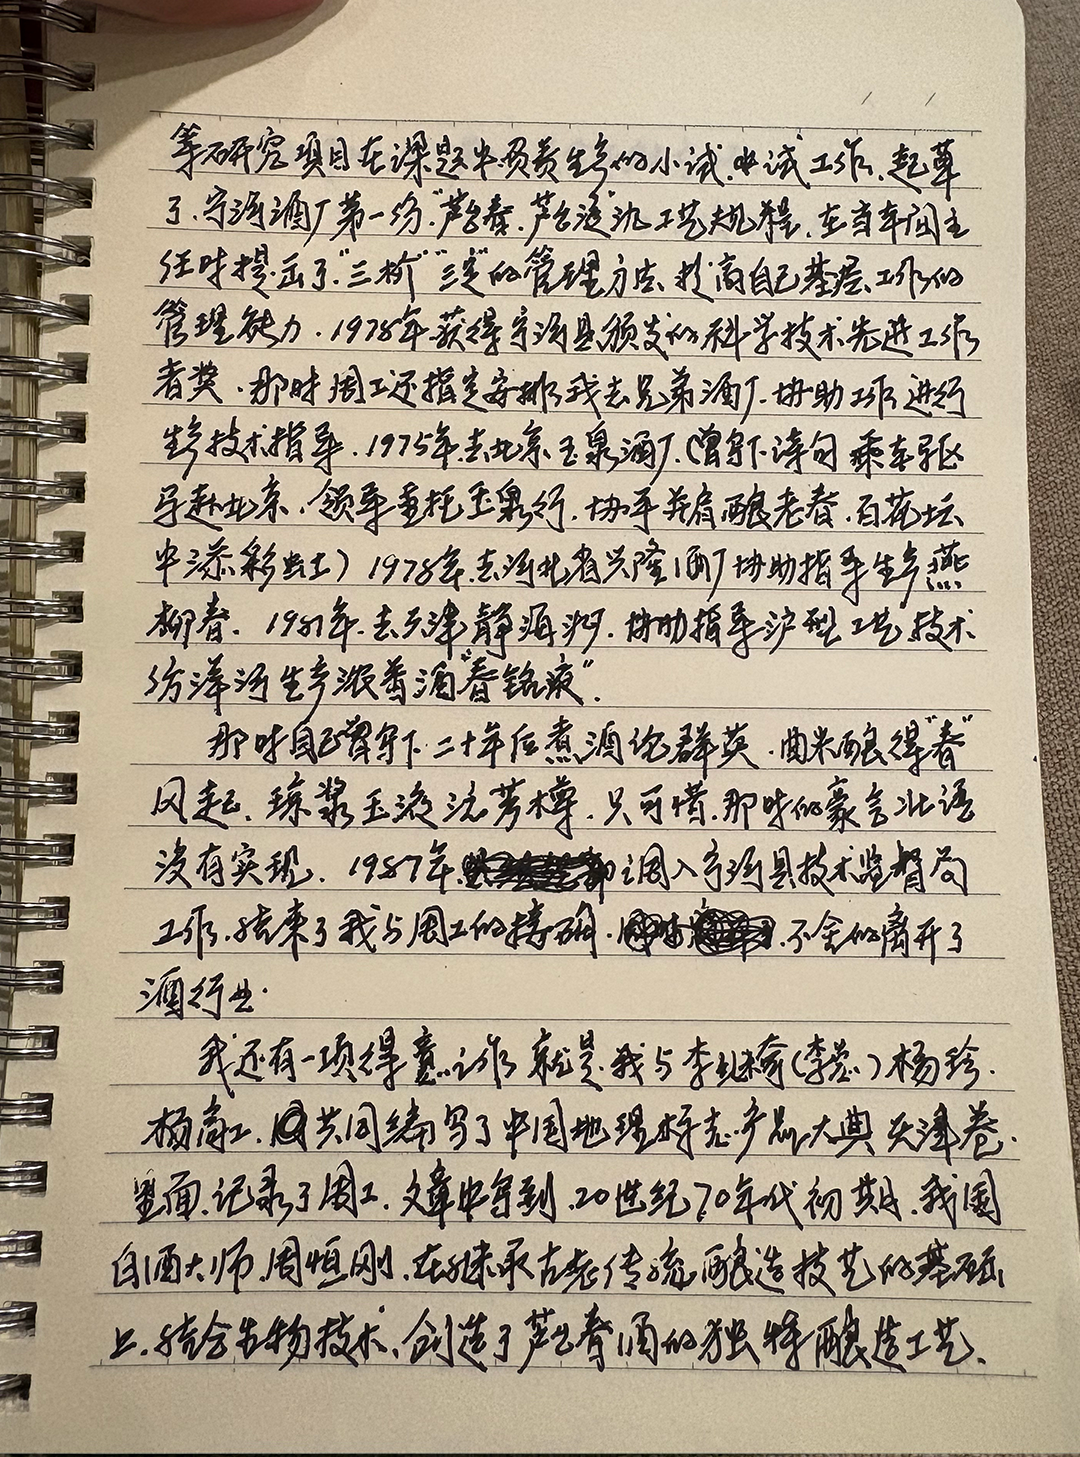 等研究项目在课题中负责生产的小试.中试工作、起草
了.宁河酒厂第一份“芦台春.芦台液”沉工艺规程、在当车间主
任时提出了“三阶”“三定”的管理方法.提高自己基层工作的
管理能力.1978年获得宁河县颁发的科学技术先进工作
者奖.那时周工还指定安排我去兄弟酒厂.协助工作进行
生产技术指导.1975年.去北京玉泉酒厂.(曾写下诗句 乘车驱
马赴北京.领导重托玉泉行.协手并肩酿老春.百花坛
中添彩虹) 1978年.去河北省兴隆酒厂协助指导生产燕
柳春. 1981年.去天津静海.协助指导泸型工艺技术
仿洋河生产浓香酒“春铭液”.
那时自己曾写下.二十年后煮酒论群英.曲米酿得“春”
风起、琼浆玉液沈芳樽.只可惜.那时的豪言壮语
没有实现、1987年.调入宁河县技术监督局
工作.结束了我与周工的接触.不舍的离开了
酒行业.
我还有一项得意之作就是.我与李(李蕊)杨珍.
杨高工.共同编写了中国地理标志.产品大典天津卷.
里面.记录了周工.文章中写到.20世纪70年代初期.我国
白酒大师.周恒刚.在继承古老传统酿造技艺的基础
上.结合生物技术、创造了芦台春酒的独特酿造工艺、